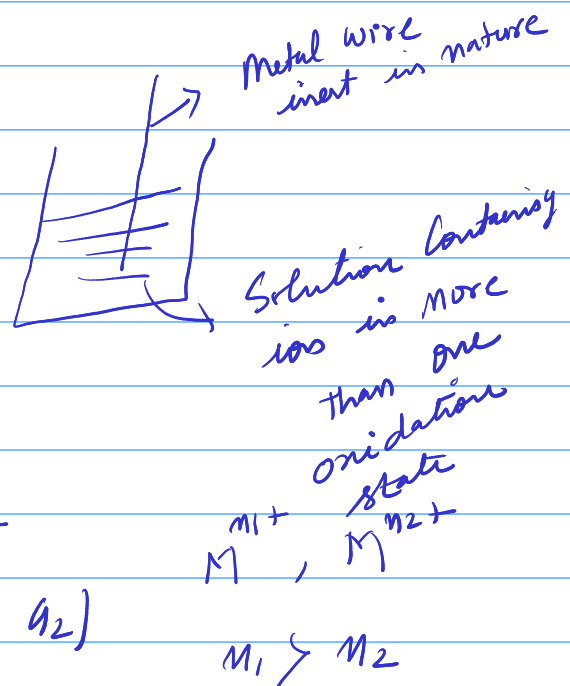 Metal wire
inert in nature
Solution Containing
ions in more
than one
oxidation
state
M^{n1+}, M^{n2+}
a2)
n1 > n2